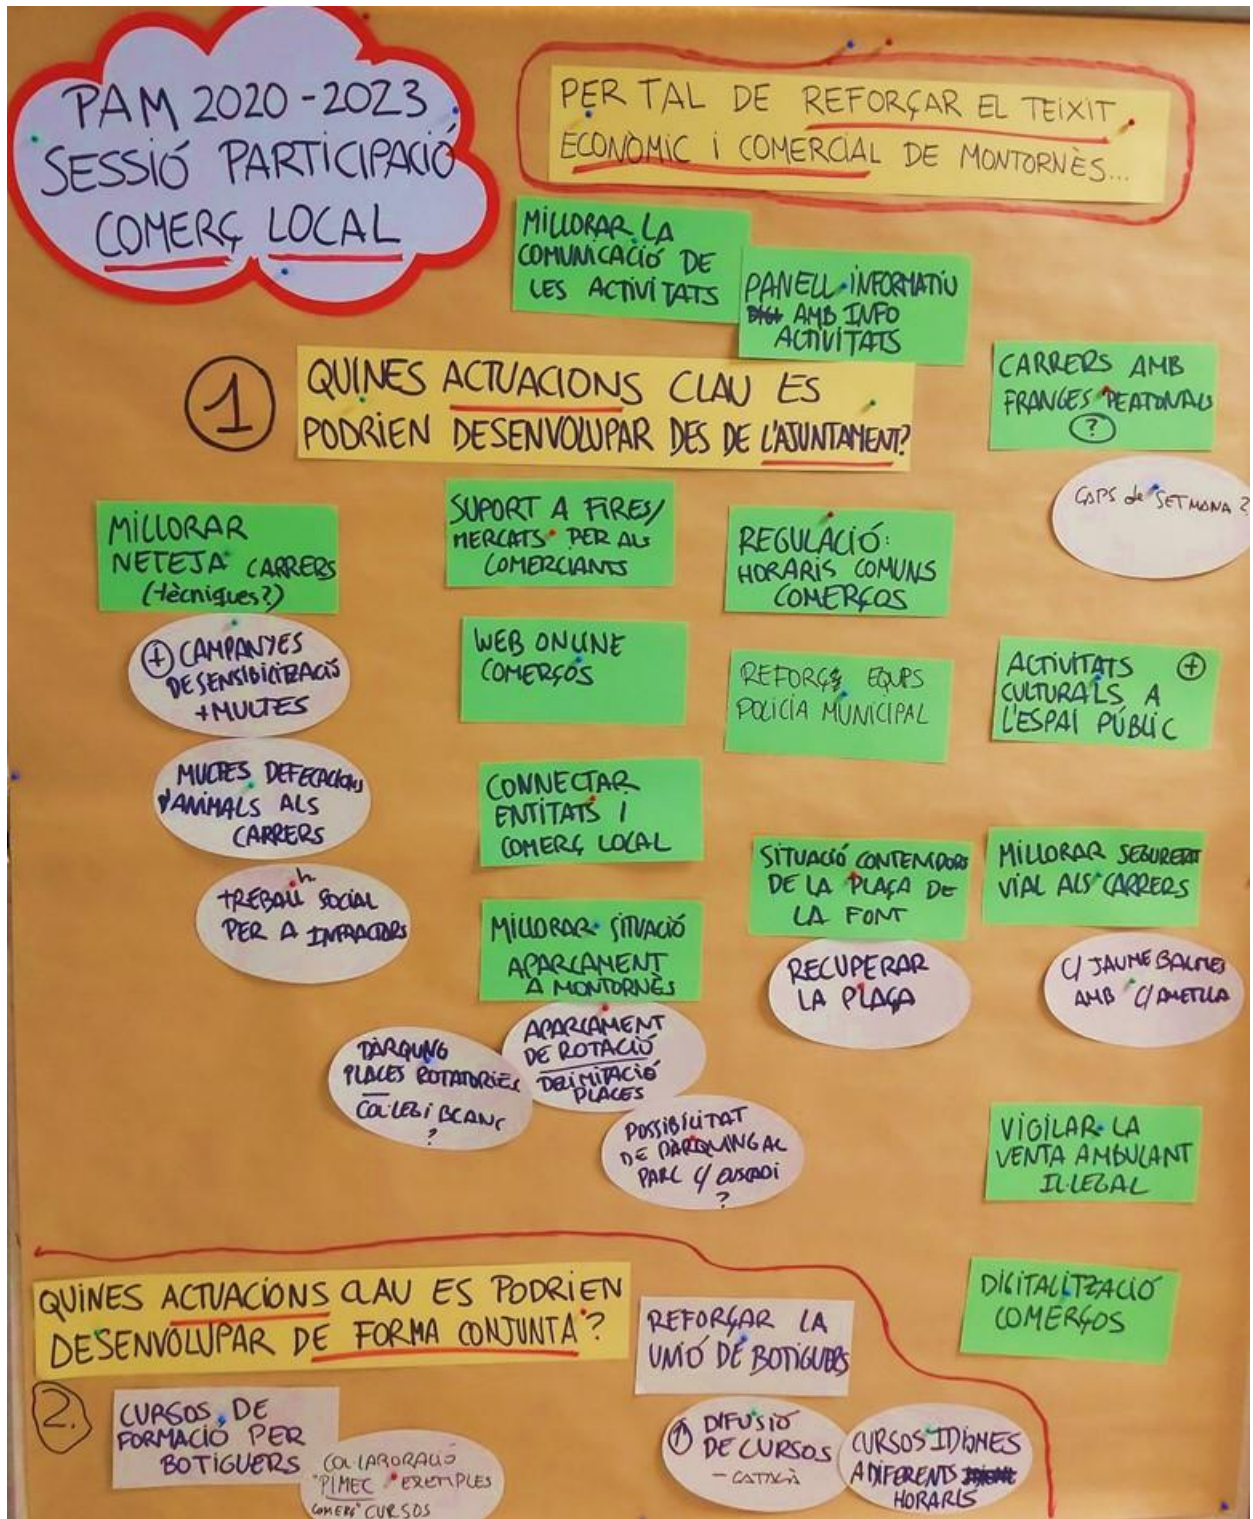 PAM 2020-2023
SESSIÓ PARTICIPACIÓ
COMERÇ LOCAL
PER TAL DE REFORÇAR EL TEIXIT
ECONÒMIC I COMERCIAL DE MONTORNÈS...
MILLORAR LA
COMUNICACIÓ DE
LES ACTIVITATS
PANELL INFORMATIU
AMB INFO
ACTIVITATS
1
QUINES ACTUACIONS CLAU ES
PODRIEN DESENVOLUPAR DES DE L'AJUNTAMENT?
CARRERS AMB
FRANGES PEATONALS
?
CAPS de SETMANA?
MILLORAR
NETEJA CARRERS
(tècniques?)
+ CAMPANYES
DE SENSIBILITZACIÓ
+ MULTES
MULTES DEFECACIONS
D'ANIMALS ALS
CARRERS
TREBALL SOCIAL
PER A INFRACTORS
SUPORT A FIRES/
MERCATS PER ALS
COMERCIANTS
WEB ONLINE
COMERÇOS
CONNECTAR
ENTITATS I
COMERÇ LOCAL
MILLORAR SITUACIÓ
APARCAMENT
A MONTORNÈS
PÀRQUING
PLACES ROTATORIES
COL·LEGI BLANC
?
APARCAMENT
DE ROTACIÓ
DELIMITACIÓ
PLACES
POSSIBILITAT
DE PÀRQUING AL
PARC C/ EUSCADI
?
REGULACIÓ:
HORARIS COMUNS
COMERÇOS
REFORÇ EQUIPS
POLICIA MUNICIPAL
SITUACIÓ CONTENIDORS
DE LA PLAÇA DE
LA FONT
RECUPERAR
LA PLAÇA
ACTIVITATS +
CULTURALS A
L'ESPAI PÚBLIC
MILLORAR SEGURETAT
VIAL ALS CARRERS
C/ JAUME BALMES
AMB C/ AMETLLA
VIGILAR LA
VENTA AMBULANT
IL·LEGAL
DIGITALITZACIÓ
COMERÇOS
QUINES ACTUACIONS CLAU ES PODRIEN
DESENVOLUPAR DE FORMA CONJUNTA?
2.
CURSOS DE
FORMACIÓ PER
BOTIGUERS
COL·LABORACIÓ
"PIMEC EXEMPLES
COMERÇ" CURSOS
REFORÇAR LA
UNIÓ DE BOTIGUERS
↑ DIFUSIÓ
DE CURSOS
- CATALÀ
CURSOS IDIOMES
A DIFERENTS
HORARIS